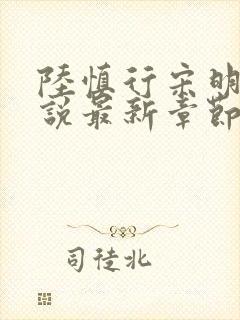 陸慎行宋明
說最新章節
司徒北